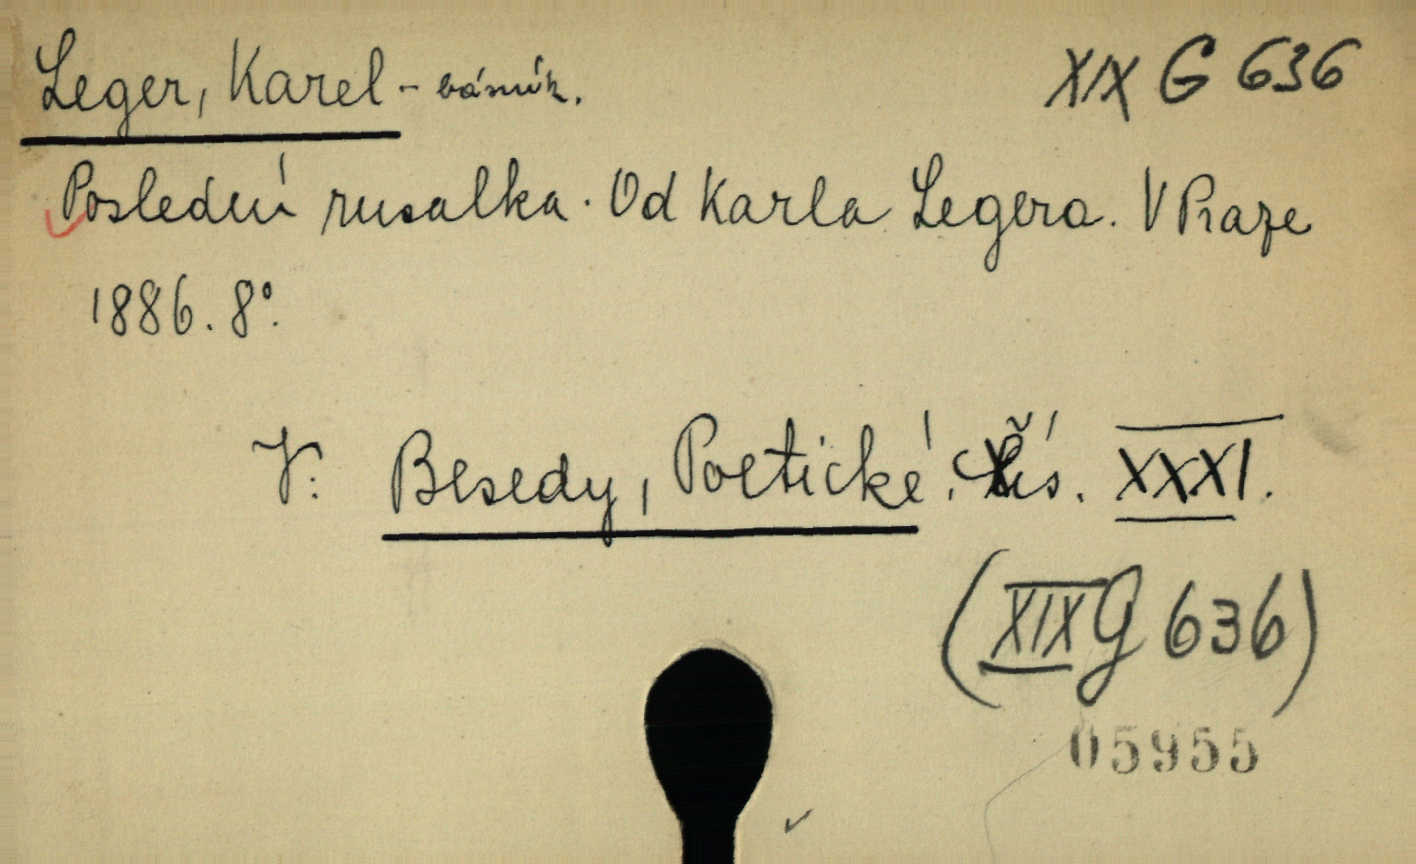 Leger, Karel - básník. XIX G 636
Poslední rusalka. Od Karla Legera. V Praze
1886. 8°.
V: Besedy, Poetické. Čís. XXXI.
(XIX G 636)
05955